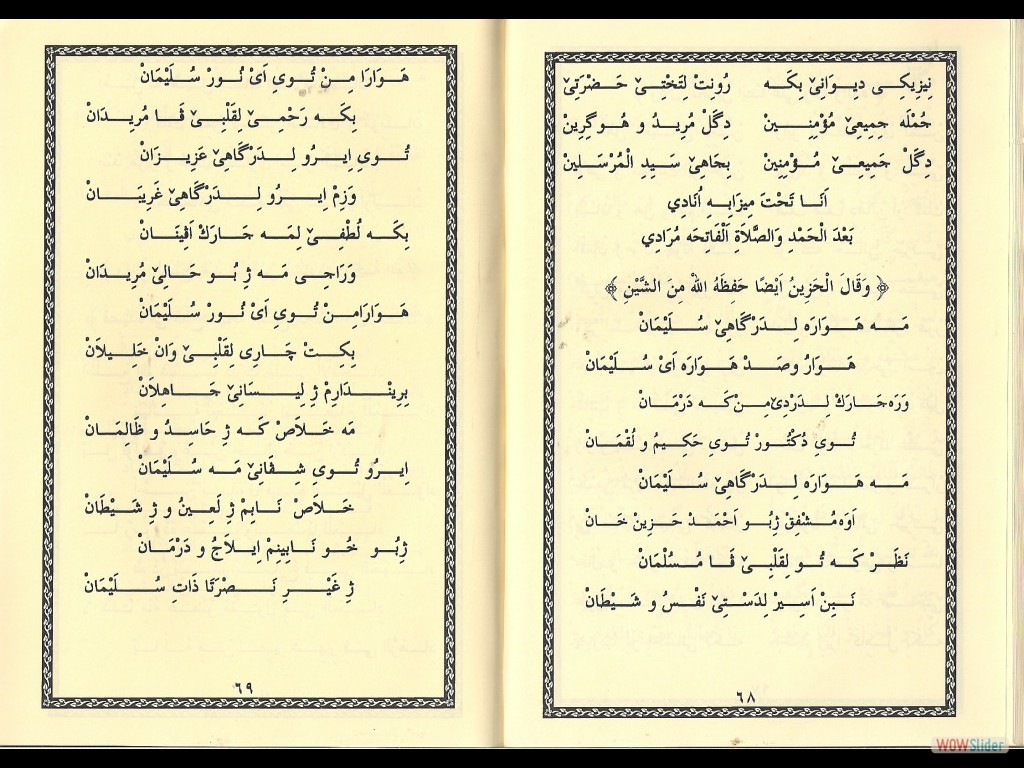 نِيزِيكِى دِيوَانِىْ بِكَه رُونِتْ لِتَخْتِىْ حَضْرَتِىْ
جُمْلَه جِمِيعِىْ مُؤْمِنِينْ دِگَلْ مُرِيدُ و هُوگِرِينْ
دِگَلْ جَمِيعِىْ مُؤْمِنِينْ بِجَاهِىْ سَيِدِ الْمُرْسَلِينْ
اَنَا تَحْتَ مِيزَابِهِ اُنَادِي
بَعْدَ الْحَمْدِ وَالصَّلَاةِ اَلْفَاتِحَه مُرَادِي
﴿ وَقَالَ الْحَزِينُ اَيْضًا حَفِظَهُ اللهُ مِنَ الشَّيْنِ ﴾
مَه هَوَارَه لِدَرْگَاهِىْ سُلَيْمَانْ
هَوَارُ وصَدْ هَوَارَه اَىْ سُلَيْمَانْ
وَرَه جَارَكْ لِدَرْدِىْ مِنْ كَه دَرْمَانْ
تُوىِ دُكْتُورْ تُوىِ حَكِيمُ و لُقْمَانْ
مَه هَوَارَه لِدَرْگَاهِىْ سُلَيْمَانْ
اَوَه مُشْفِقْ ژِبُو اَحْمَدْ حَزِينْ خَانْ
نَظَرْ كَه تُو لِقَلْبِىْ ڤَا مُسُلْمَانْ
نَبِنْ اَسِيرْ لِدَسْتِىْ نَفْسُ و شَيْطَانْ
٦٨
هَوَارَا مِنْ تُوىِ اَىْ نُورْ سُلَيْمَانْ
بِكَه رَحْمِىْ لِقَلْبِىْ ڤَا مُرِيدَانْ
تُوىِ اِيرُو لِدَرْگَاهِىْ عَزِيزَانْ
وَزِمْ اِيرُو لِدَرْگَاهِىْ غَرِيبَانْ
بِكَه لُطْفِىْ لِمَه جَارَكْ اَڤِينَانْ
وَرَاجِى مَه ژِ بُو حَالِىْ مُرِيدَانْ
هَوَارَامِنْ تُوىِ اَىْ نُورْ سُلَيْمَانْ
بِكِتْ چَارِى لِقَلْبِىْ وَانْ خَلِيلَانْ
بِرِينْدَارِمْ ژِ لِيسَانِىْ جَاهِلَانْ
مَه خَلَاصْ كَه ژِ حَاسِدُ و ظَالِمَانْ
اِيرُو تُوىِ شِڤَانِىْ مَه سُلَيْمَانْ
خَلَاصْ نَابِمْ ژِ لَعِينُ و ژِ شَيْطَانْ
ژِبُو خُو نَابِينِمْ اِيلَاجُ و دَرْمَانْ
ژِ غَيْرِ نَصْرَتَا ذَاتِ سُلَيْمَانْ
٦٩
WOWSlider